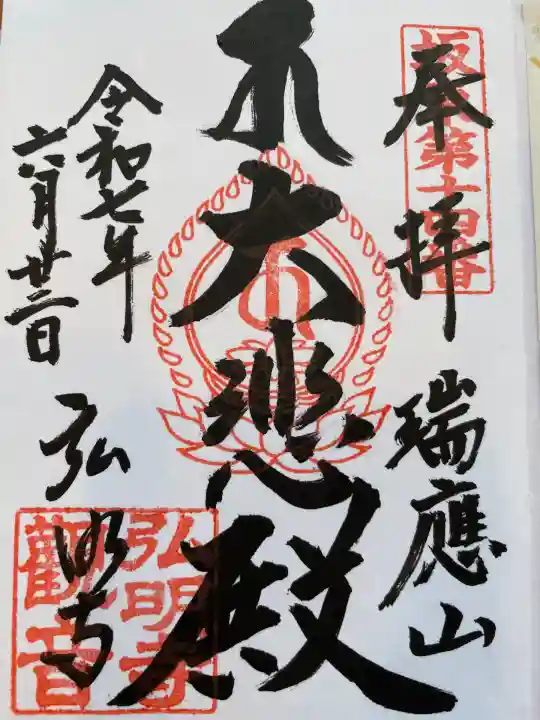 坂東第十四番
奉拝
瑞應山
大悲殿
令和七年
六月廿二日
弘明寺
弘明寺
觀音